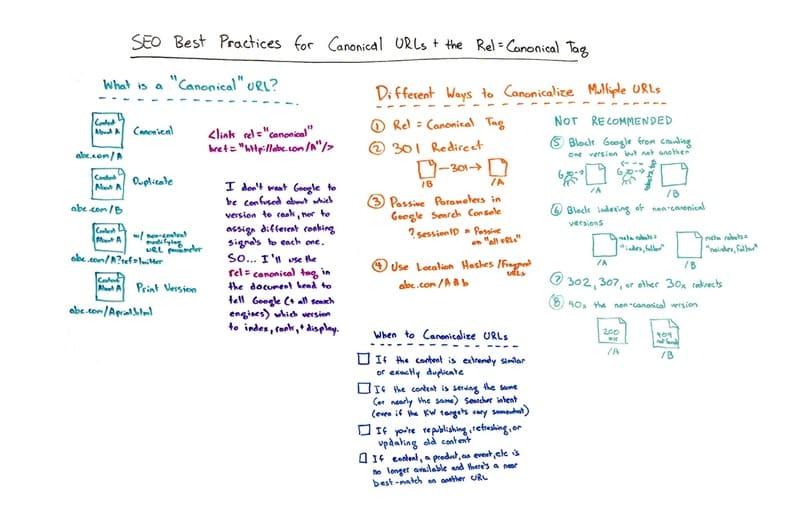 SEO Best Practices for Canonical URLs + the Rel=Canonical Tag
What is a "Canonical" URL?
Content About A
Canonical
abc.com/A
Content About A
Duplicate
abc.com/B
Content About A
w/ non-content
modifying
URL parameter
abc.com/A?ref=twitter
Content About A
Print Version
abc.com/Aprint.html
<link rel="canonical"
href="http://abc.com/A"/>
I don't want Google to
be confused about which
version to rank, nor to
assign different ranking
signals to each one.
SO... I'll use the
rel=canonical tag in
the document head to
tell Google (+ all search
engines) which version
to index, rank, + display.
Different Ways to Canonicalize Multiple URLs
① Rel = Canonical Tag
② 301 Redirect
—301→
/B
/A
③ Passive Parameters in
Google Search Console
?sessionID = Passive
on "all URLs"
④ Use Location Hashes/Fragment
URLs
abc.com/A#b
NOT RECOMMENDED
⑤ Block Google from crawling
one version but not another
/A
/B
⑥ Block indexing of non-canonical
versions
meta robots=
"index, follow"
/A
meta robots=
"noindex, follow"
/B
⑦ 302, 307, or other 30x redirects
⑧ 40x the non-canonical version
200
/A
404
not found
/B
When to Canonicalize URLs
If the content is extremely similar
or exactly duplicate
If the content is serving the same
(or nearly the same) searcher intent
(even if the KW targets vary somewhat)
If you're republishing, refreshing, or
updating old content
If content, a product, an event, etc is
no longer available and there's a near
best-match on another URL